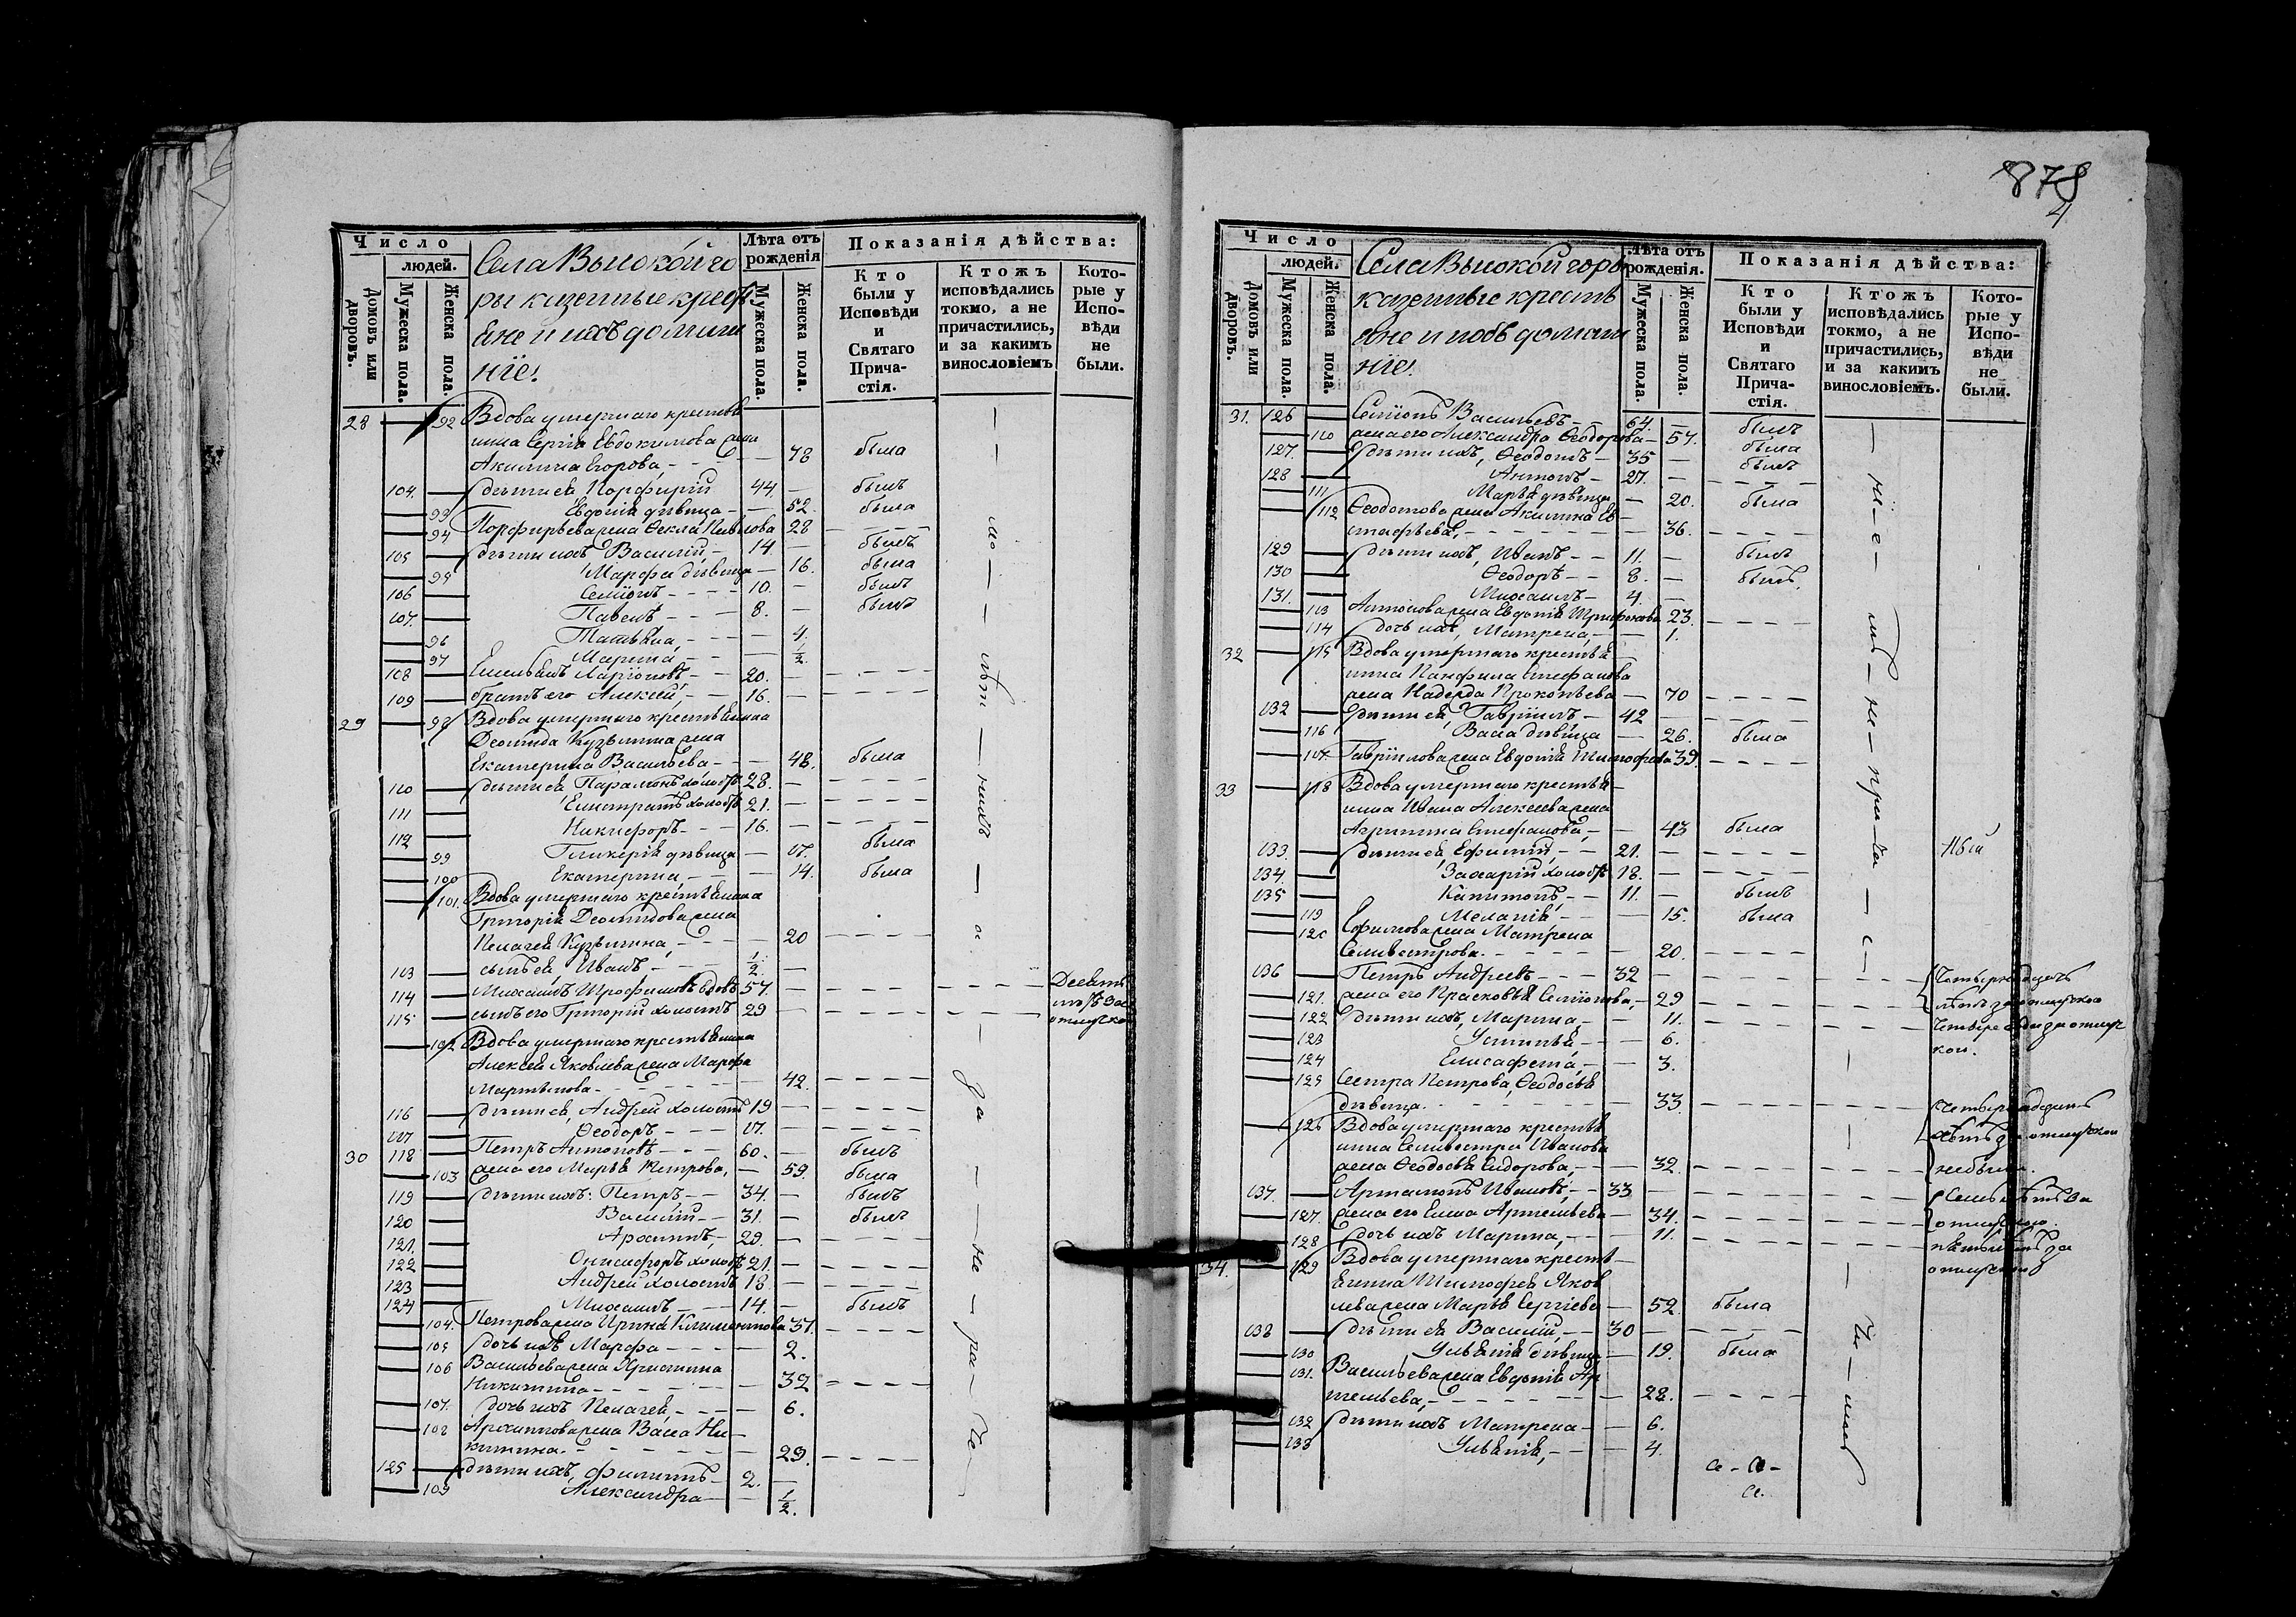 Число
людей.
Домовъ или дворовъ.
Мужеска пола.
Женска пола.
Села Высокой го
ры казенные крест
яне и ихъ домаш
ніе.
Лѣта отъ рожденія
Мужеска пола.
Женска пола.
Показанія дѣйства:
Кто были у Исповѣди и Святаго Прича-стія.
Ктожъ исповѣдались токмо, а не причастились, и за какимъ винословіемъ
Кото-рые у Испо-вѣди не были.
28 92 Вдова умершаго крестья
нина Сергія Евдокимова жена
Акилина Егорова 78 была
104. дѣти ея Порфирій 44. былъ
93 Евдокія дѣвица 52. была
94 Порфирьева жена Ѳекла Павлова 28
105 дѣти ихъ Василій 14. былъ
95 Марфа дѣвица 16. была
106 Семіонъ 10. былъ
107. Павелъ 8. былъ
96 Татьяна 4.
97 Марина ½.
108 Емельянъ Ларіоновъ 20.
109 братъ его Алексей 16.
29 98 Вдова умершаго крестьянина
Деомида Кузьмина жена
Екатерина Васильева 48. была
110 дѣти ея Парамонъ холостъ 28.
111 Елистратъ холостъ 21.
112 Никифоръ 16.
99 Гликерія дѣвица 17. была
100 Екатерина 14. была
101. Вдова умершаго крестьянина
Григорія Деомидова жена
Пелагея Кузьмина 20
113 сынъ ея Иванъ ½.
114 Михаилъ Трофимовъ вдовъ 57.
115 сынъ его Григорій холостъ 29
102 Вдова умершаго крестьянина
Алексея Яковлева жена Марфа
Мартынова 42.
116 дѣти ея, Андрей холостъ 19
117 Ѳеодоръ 17.
30 118 Петръ Антоновъ 60. былъ
103 жена его Марья Петрова, 59. была
119 дѣти ихъ: Петръ 34. былъ
120 Василій 31. былъ
121. Архипъ 29.
122 Онисифоръ холостъ 21.
123 Андрей холостъ 18
124 Михаилъ 14. былъ
104. Петрова жена Ирина Климентова 37.
105 дочь ихъ Марфа 2.
106 Васильева жена Христина
Никитина 32
107. дочь ихъ Пелагея 6.
108 Архипова жена Васса Ни-
китина. 29.
125 дѣти ихъ, Филиппъ 2.
109 Александра ½.
878
4
Число
людей.
Домовъ или дворовъ.
Мужеска пола.
Женска пола.
Села Высокой горы
казенные кресть
яне и ихъ домаш
ніе.
Лѣта отъ рожденія.
Мужеска пола.
Женска пола.
Показанія дѣйства:
Кто были у Исповѣди и Святаго Прича-стія.
Ктожъ исповѣдались токмо, а не причастились, и за какимъ винословіемъ.
Кото-рые у Испо-вѣди не были.
31. 126 Семіонъ Васильевъ 64. былъ
110 жена его Александра Ѳеодорова 57. была
127. дѣти ихъ, Ѳеодотъ 35 былъ
128 Антонъ 27.
111 Марья дѣвица 20. была
112 Ѳеодотова жена Акилина Ев-
стафьева, 36.
129 дѣти ихъ, Иванъ 11. былъ
130 Ѳеодоръ 8. былъ
131. Михаилъ 4.
113 Антонова жена Евдокія Трифонова 23.
114 дочь ихъ, Матрена 1.
32 115 Вдова умершаго крестья
нина Панфила Стефанова
жена Надежда Прокопьева 70
132 дѣти ея, Гавріилъ 42
116 Васса дѣвица 26. была
117. Гавріилова жена Евдокія Тимофеева 39.
33 118 Вдова умершаго крестья-
нина Ивана Алексеева жена
Агрипина Стефанова, 43 была
133. дѣти ея Ефимій, 21.
134. Захарій холостъ 18.
135 Капитонъ 11. былъ
119 Меланія 15. была
120 Ефимова жена Матрена
Селивестрова. 20.
136 Петръ Андреевъ 32 Четырнадцать
121. жена его Прасковья Семіонова, 29 лѣтъ за отлучкою
122 дѣти ихъ, Марина 11.
123 Устинья 6.
124 Елисафета, 3.
125 Сестра Петрова, Ѳеодосья
дѣвица. 33.
126 Вдова умершаго крестья
нина Селивестра Иванова
жена Ѳеодосья Сидорова, 32. небыли.
137. Артамонъ Ивановъ, 33 Семь лѣтъ за
127. жена его Елена Артемьева 34. отлучкою.
128 дочь ихъ Марина, 11.
34. 129 Вдова умершаго кресть-
янина Тимофея Яков
лева жена Марья Сергіева 52. была
138 дѣти ея Василій, 30
130 Ульянія дѣвица 19. была
131. Васильева жена Евдокія Ар
темьева, 28.
132 дѣти ихъ Матрена 6.
133 Ульянія, 4.